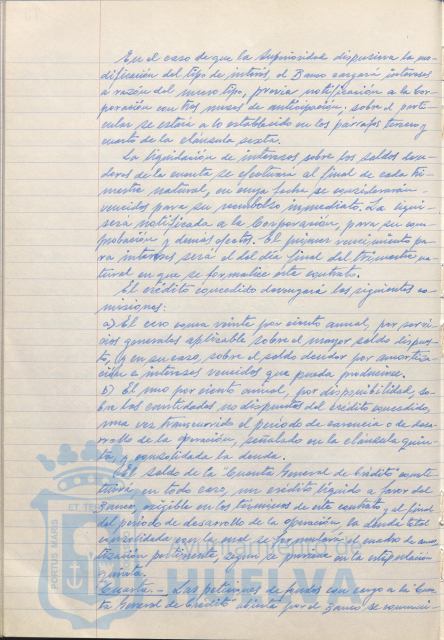 En el caso de que la Superioridad dispusiera la mo-
dificación del tipo de interés, el Banco cargará intereses
a razón del nuevo tipo, previa notificación a la Cor-
poración con tres meses de anticipación; sobre el parti-
cular se estará a lo establecido en los párrafos tercero y
cuarto de la cláusula sexta.
La liquidación de intereses sobre los saldos deu-
dores de la cuenta se efectuará al final de cada tri-
mestre natural, en cuya fecha se considerarán
vencidos para su reembolso inmediato. La liqui-
será notificada a la Corporación, para su com-
probación y demás efectos. El primer vencimiento pa-
ra intereses será el del día final del trimestre na-
tural en que se formalice este contrato.
El crédito concedido devengará las siguientes co-
misiones:
a) El cero coma veinte por ciento anual, por servi-
cios generales aplicable sobre el mayor saldo dispues-
to, y en su caso, sobre el saldo deudor por amortiza-
ción e intereses vencidos que pueda producirse.
b) El uno por ciento anual, por disponibilidad, so-
bre las cantidades no dispuestas del crédito concedido,
una vez transcurrido el período de carencia o de desa-
rrollo de la operación, señalado en la cláusula quin-
ta, y consolidada la deuda.
El saldo de la "Cuenta General de Crédito" consti-
tuirá, en todo caso, un crédito líquido a favor del
Banco, exigible en los términos de este contrato, y al final
del período de desarrollo de la operación, la deuda total
consolidada, con la cual se formulará el cuadro de amor-
tización pertinente, según se previene en la estipulación
quinta.
Cuarta.- Las peticiones de fondos con cargo a la Cuen-
ta General de Crédito abierta por el Banco se comuni-
PORTUS MARIS
ET TER
Ayuntamiento de
HUELVA